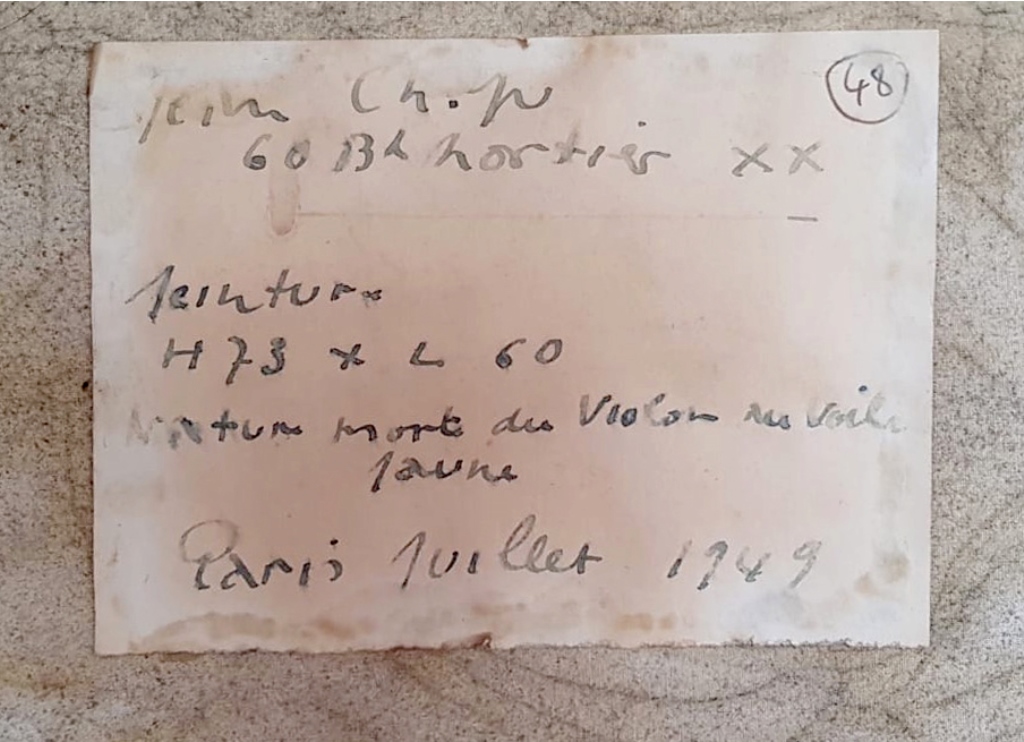 Jean Ch.
48
60 Bd Mortier XX
Peinture
H 73 x L 60
Nature morte du Violon au Voile
Jaune
Paris Juillet 1949